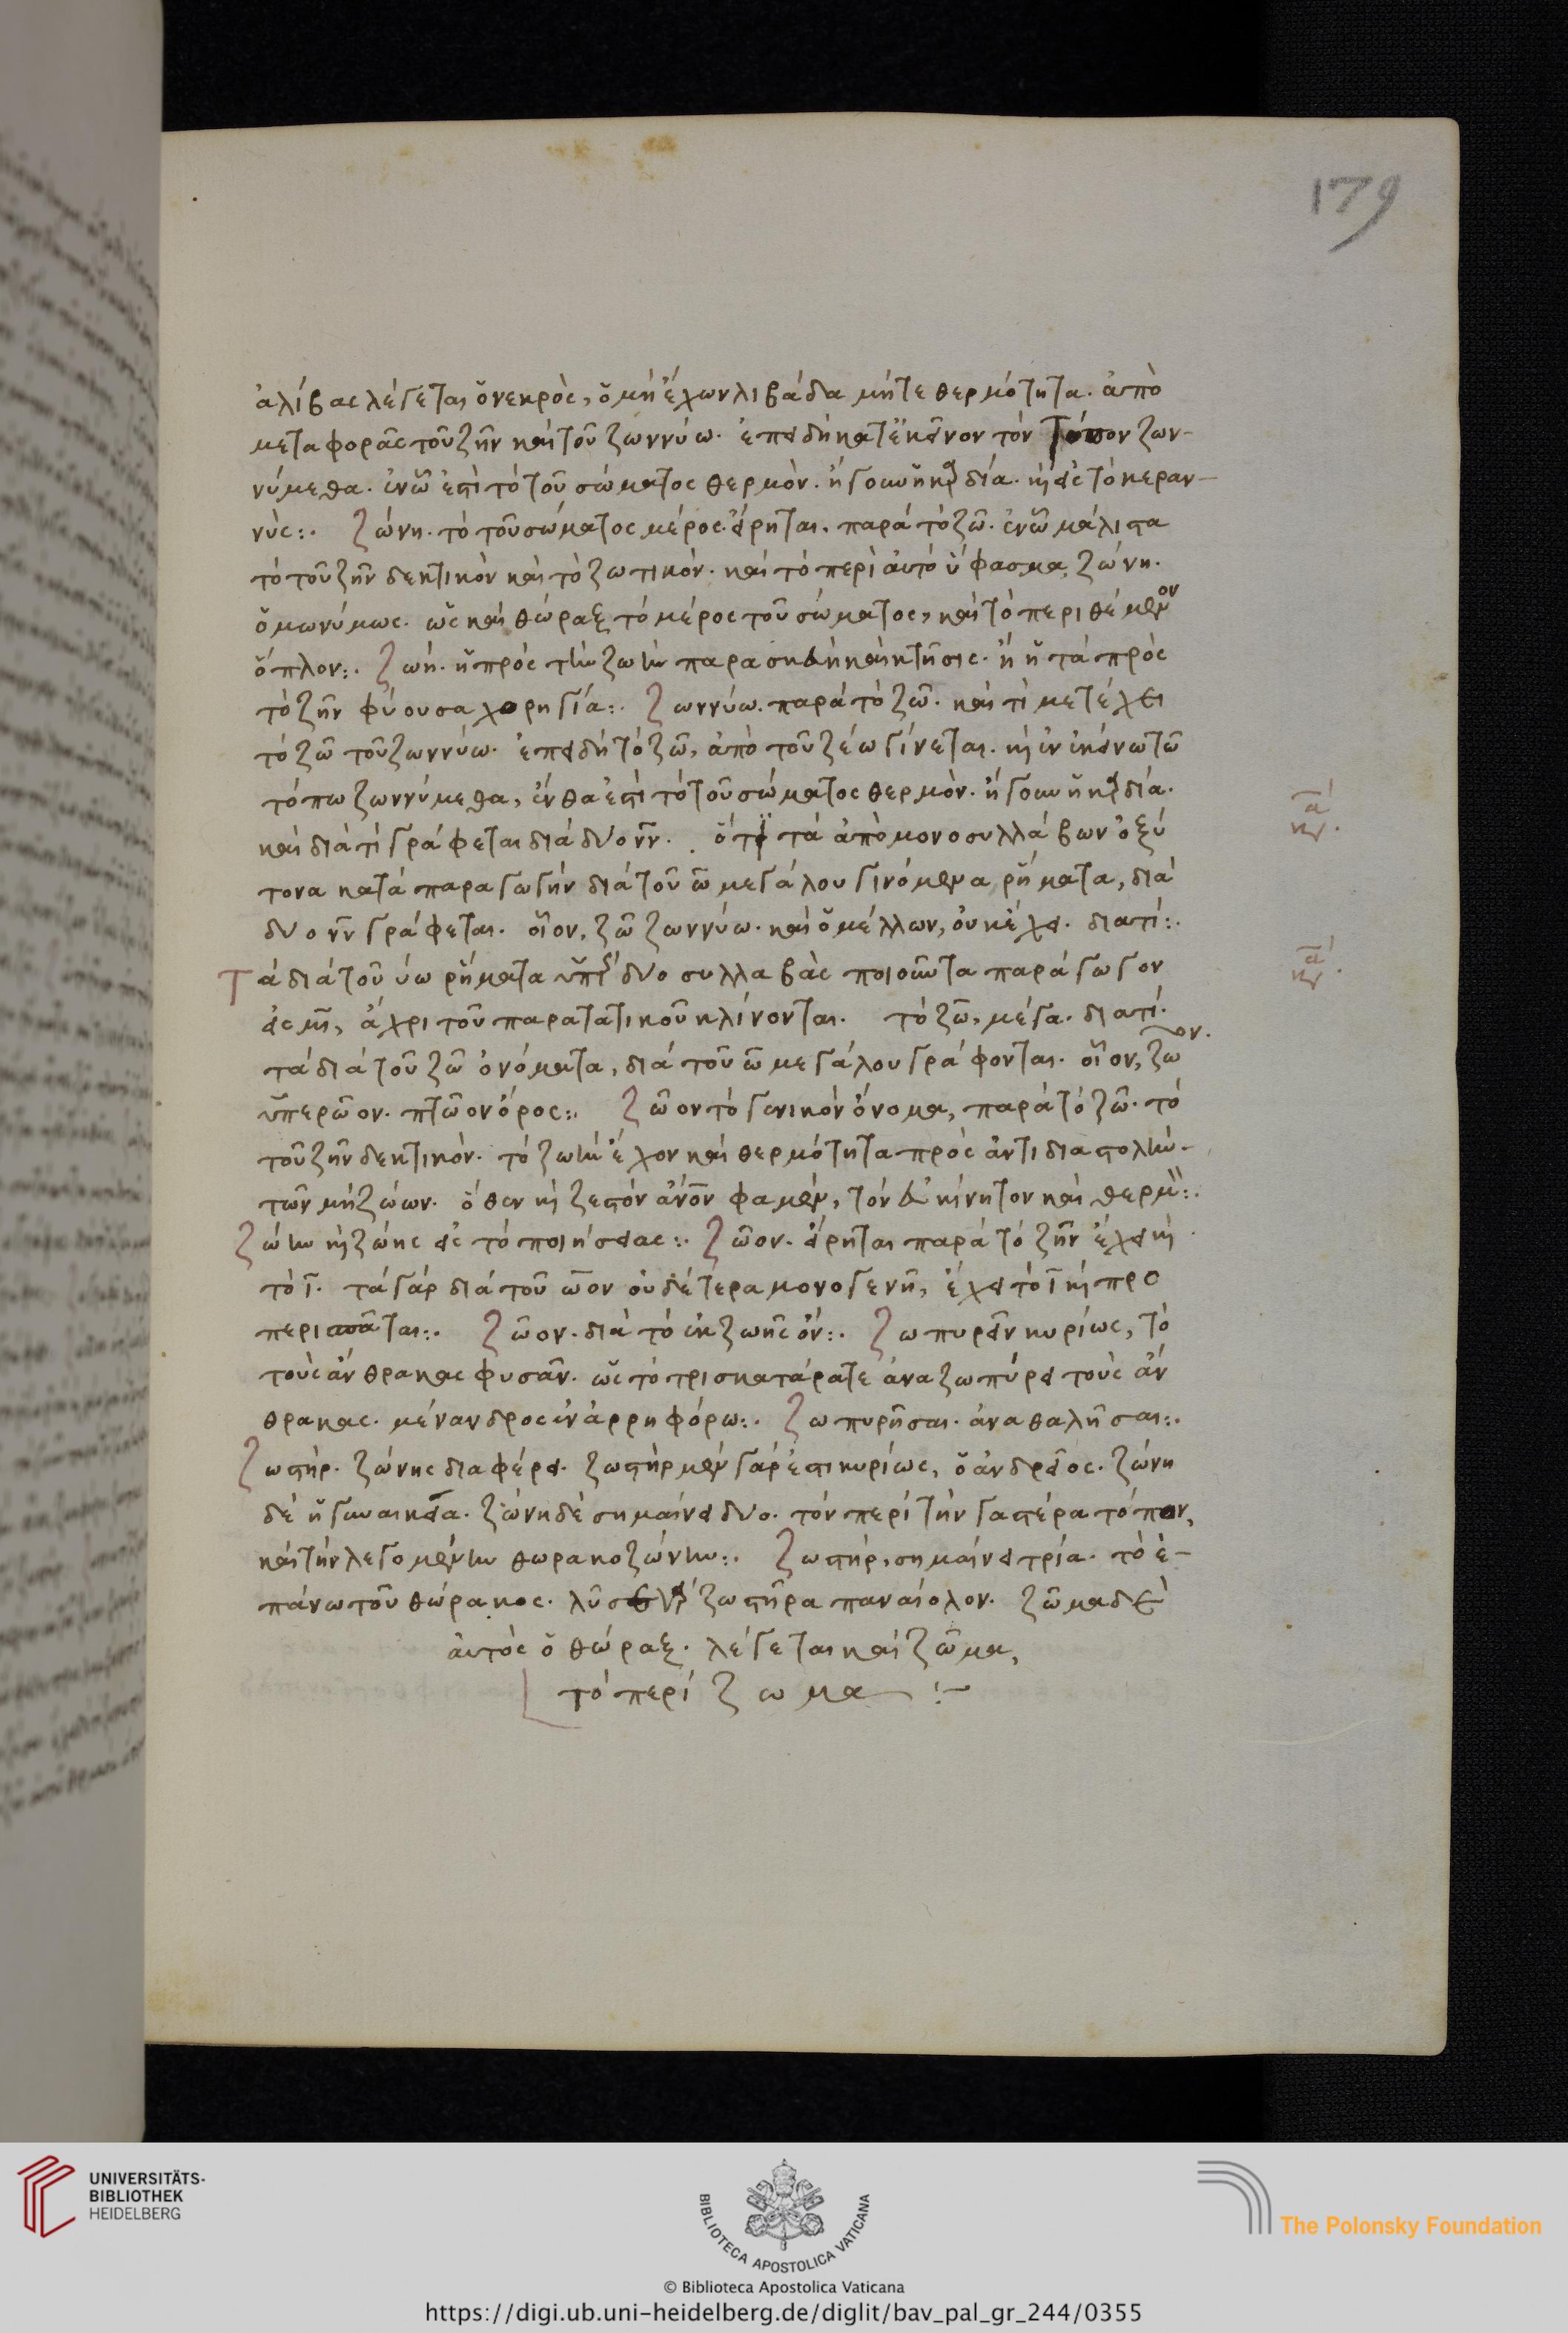 179
ἀλίβας λέγεται ὁ νεκρὸς, ὁ μὴ ἔχων λιβάδα μήτε θερμότητα. ἀπὸ
μεταφορᾶς τοῦ ζῆν καὶ τοῦ ζωννύω. ἐπειδὴ κατ' ἐκεῖνον τὸν τόπον ζων-
νύμεθα. ἐν ᾧ ἐστὶ τὸ τοῦ σώματος θερμὸν. ἤγουν ἡ καρδία. καὶ εἰς τὸ κεραν-
νὺς:. Ζώνη. τὸ τοῦ σώματος μέρος. εἴρηται, παρὰ τὸ ζῶ. ἐν ᾧ μάλιστα
τὸ τοῦ ζῆν δεκτικὸν καὶ τὸ ζωτικόν. καὶ τὸ περὶ αὐτὸ ὕφασμα, ζώνη.
ὁμωνύμως. ὡς καὶ θώραξ τὸ μέρος τοῦ σώματος, καὶ τὸ περιθέμενον
ὅπλον:. Ζωή. ἡ πρὸς τὴν ζωὴν παρασκευὴ καὶ κτῆσις. ἢ ἡ τὰ πρὸς
τὸ ζῆν φύουσα χορηγία:. Ζωννύω. παρὰ τὸ ζῶ. καὶ τί μετέχει
τὸ ζῶ τοῦ ζωννύω. ἐπειδὴ τὸ ζῶ, ἀπὸ τοῦ ζέω γίνεται. καὶ ἐν ἐκείνω τῶ
τόπω ζωννύμεθα, ἔνθα ἐστὶ τὸ τοῦ σώματος θερμὸν. ἤγουν ἡ καρδία.
καὶ διὰ τί γράφεται διὰ δύο νν. ὅτι τὰ ἀπὸ μονοσυλλάβων ὀξύ
τονα κατὰ παραγωγὴν διὰ τοῦ ω μεγάλου γινόμενα ῥήματα, διὰ
δύο νν γράφεται. οἷον, ζῶ ζωννύω. καὶ ὁ μέλλων, οὐκ ἔχει. διατί:.
Τὰ διὰ τοῦ ύω ῥήματα ὑπὲρ δύο συλλαβὰς ποιοῦντα παράγωγον
εἰς μι, ἄχρι τοῦ παρατατικοῦ κλίνονται. τὸ ζω, μέγα. διατί.
τὰ διὰ τοῦ ζω ὀνόματα, διὰ τοῦ ω μεγάλου γράφονται. οἷον, ζῶον.
ὑπερῶον. πτῶον ὄρος:. Ζῶον τὸ γενικὸν ὄνομα, παρὰ τὸ ζῶ. τὸ
τοῦ ζῆν δεκτικὸν. τὸ ζωὴν ἔχον καὶ θερμότητα πρὸς ἀντιδιαστολὴν.
τῶν μὴ ζώων. ὅθεν καὶ ζεστὸν ἄνον φαμὲν, τὸν εὐκίνητον καὶ θερμὸν:.
Ζώην καὶ ζώης εἰς τὸ ποιήσειας:. Ζῶον. εἴρηται παρὰ τὸ ζῆν ἔχει καὶ
τὸ ι. τὰ γὰρ διὰ τοῦ ωον οὐδέτερα μονογενῆ, ἔχει τὸ ι καὶ προ
περισπᾶται:. Ζῶον. διὰ τὸ ἐκ ζωῆς ὄν:. Ζωπυρεῖν κυρίως, τὸ
τοὺς ἄνθρακας φυσᾶν. ὡς τὸ τρισκατάρατε ἀναζωπύρει τοὺς ἄν
θρακας. μένανδρος ἐν ἀρρηφόρω:. Ζωπυρῆσαι. ἀναθαλῆσαι:.
Ζωστὴρ. ζώνης διαφέρει. ζωστὴρ μὲν γάρ ἐστι κυρίως, ὁ ἀνδρεῖος. ζώνη
δὲ ἡ γυναικεία. ζώνη δὲ σημαίνει δύο. τόν περὶ τὴν γαστέρα τόπον,
καὶ τὴν λεγομένην θωρακοζώνην:. Ζωστὴρ, σημαίνει τρία. τὸ ἐ-
πάνω τοῦ θώρακος. λῦσε ζωστῆρα παναίολον. ζῶμα δὲ
αὐτὸς ὁ θώραξ. λέγεται καὶ ζῶμα,
τὸ περίζωμα :-
UNIVERSITÄTS-
BIBLIOTHEK
HEIDELBERG
BIBLIOTECA APOSTOLICA VATICANA
The Polonsky Foundation
© Biblioteca Apostolica Vaticana
https://digi.ub.uni-heidelberg.de/diglit/bav_pal_gr_244/0355